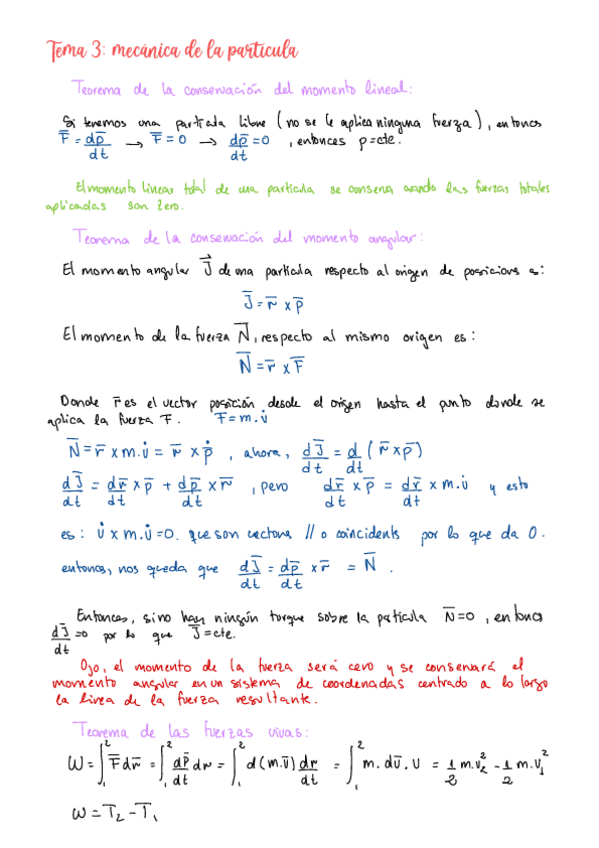 Tema 3: mecánica de la partícula
Teorema de la conservación del momento lineal:
Si tenemos una partícula libre (no se le aplica ninguna fuerza), entonces
F̄ = dp̄/dt → F̄ = 0 → dp̄/dt = 0, entonces p=cte.
El momento linear total de una partícula se conserva cuando las fuerzas totales
aplicadas son zero.
Teorema de la conservación del momento angular:
El momento angular J⃗ de una partícula respecto al origen de posiciones es:
J̄ = r̄ x p̄
El momento de la fuerza N̄, respecto al mismo origen es:
N̄ = r̄ x F̄
Donde r̄ es el vector posición desde el origen hasta el punto donde se
aplica la fuerza F. F = m. v̇
N̄ = r̄ x m. v̇ = r̄ x ṗ, ahora, dJ̄/dt = d/dt (r̄ x p̄)
dJ̄/dt = dr̄/dt x p̄ + dp̄/dt x r̄, pero dr̄/dt x p̄ = dr̄/dt x m. v̇ y esto
es: v̇ x m. v̇ = 0. que son vectores // o coincidents por lo que da 0.
entonces, nos queda que dJ̄/dt = dp̄/dt x r̄ = N̄.
Entonces, si no hay ningún torque sobre la partícula N̄=0, entoncs
dJ̄/dt =0 por lo que J̄ = cte.
Ojo, el momento de la fuerza será cero y se conservará el
momento angular en un sistema de coordenadas centrado a lo largo
la línea de la fuerza resultante.
Teorema de las fuerzas vivas:
W = ∫₁² F̄ dr̄ = ∫₁² dp̄/dt dr = ∫₁² d(m.v̄) dr/dt = ∫₁² m. dv̄. v = 1/2 m.v₂² - 1/2 m.v₁²
W = T₂ - T₁